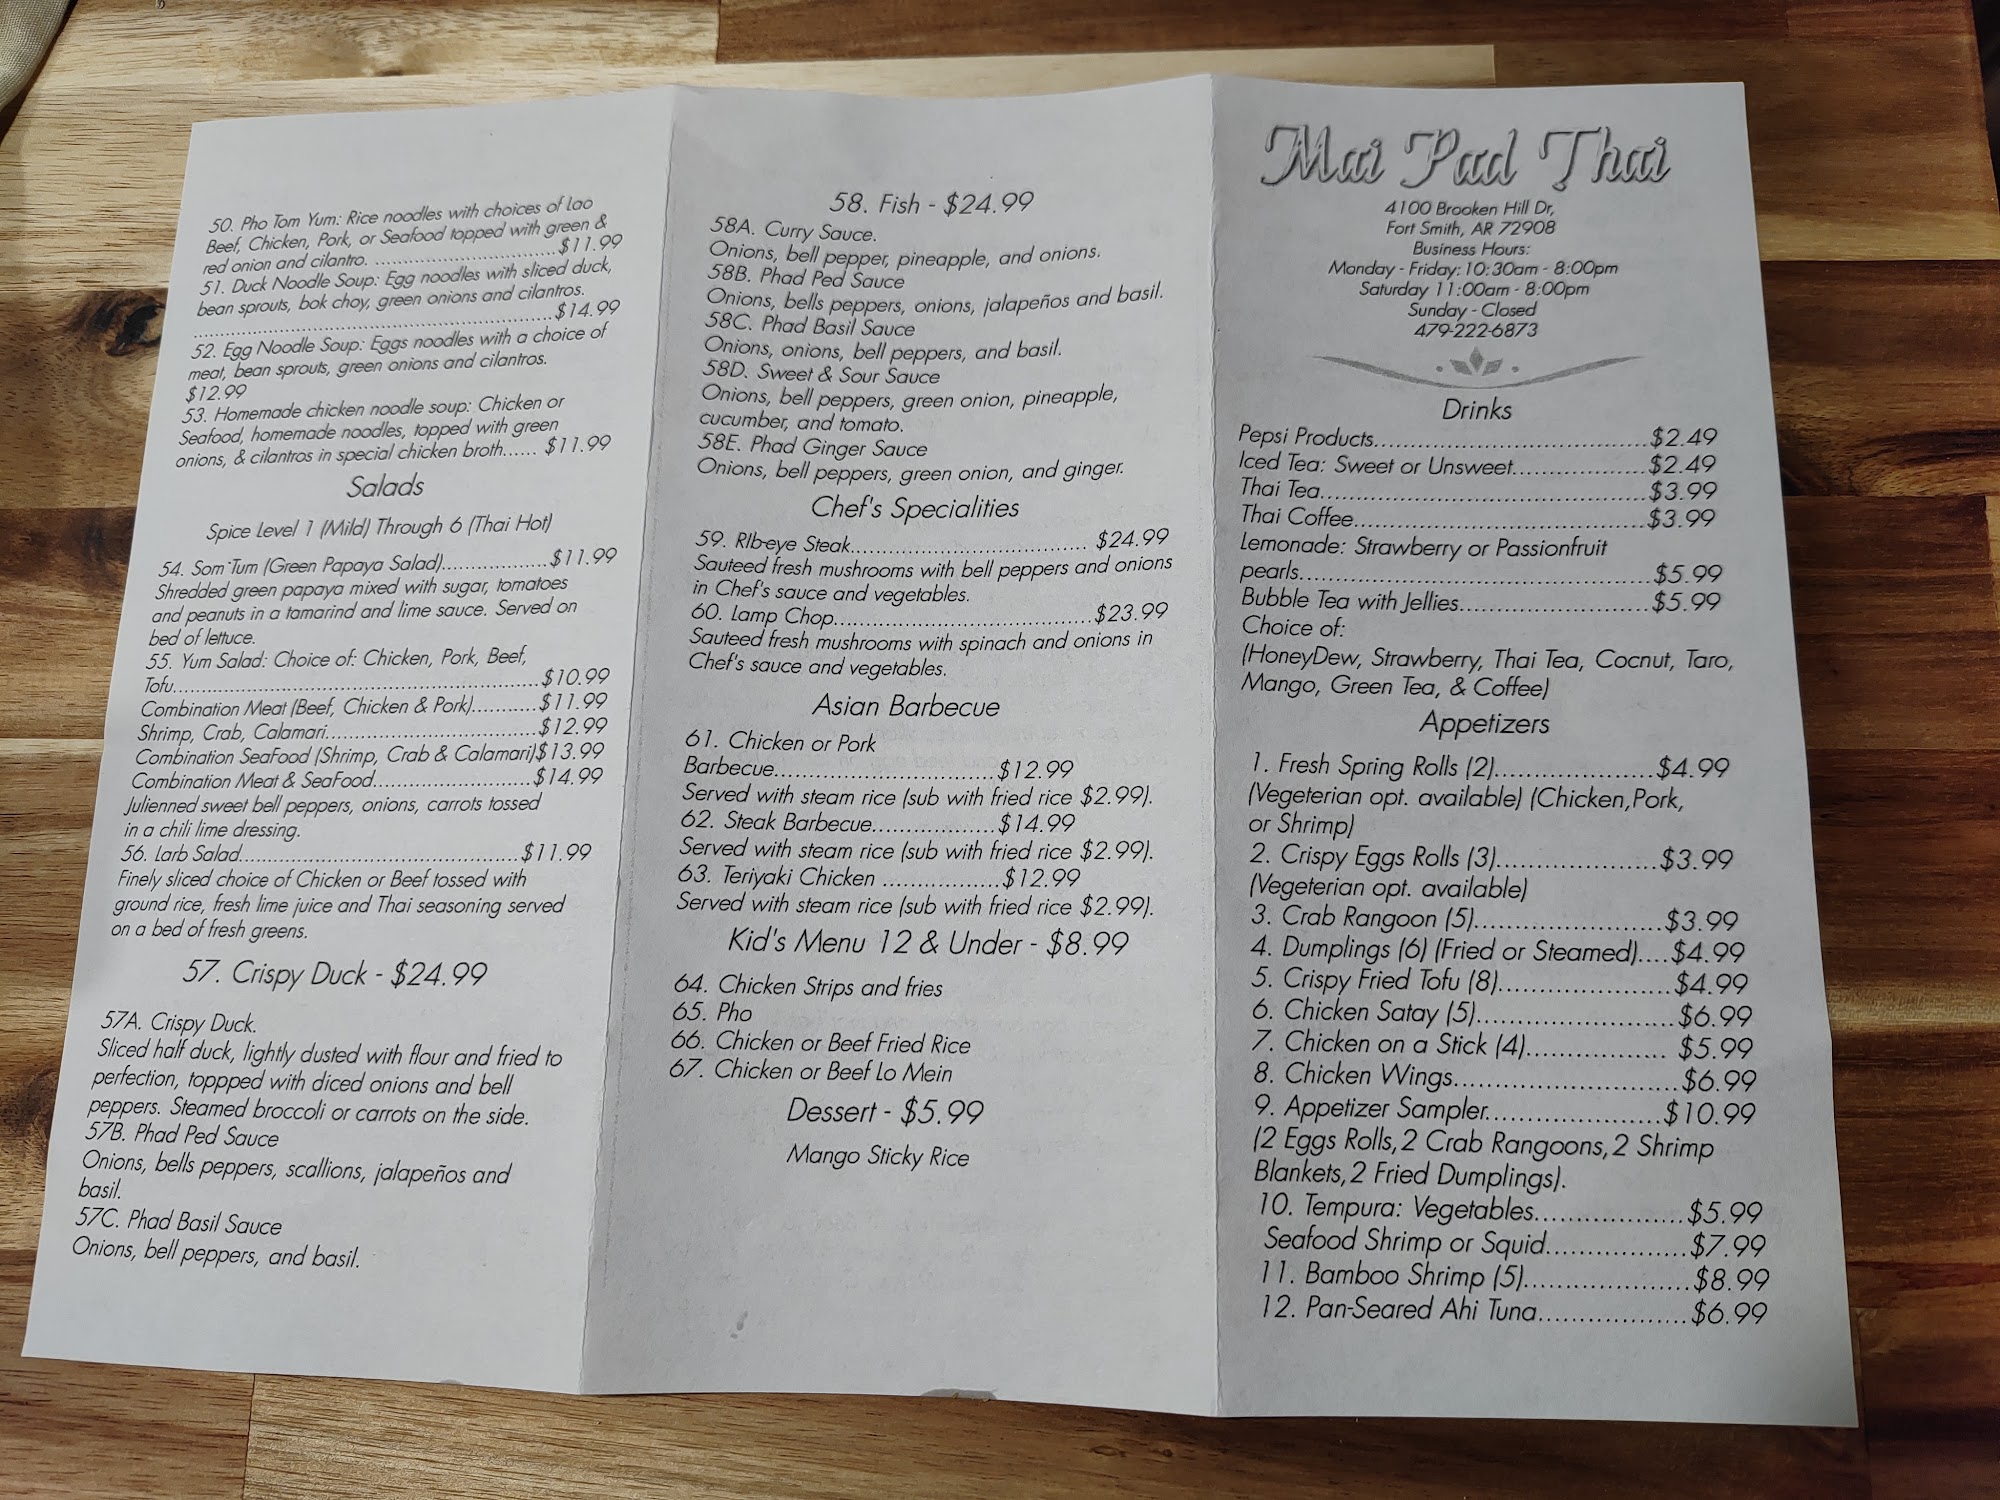 50. Pho Tom Yum: Rice noodles with choices of Lao
Beef, Chicken, Pork, or Seafood topped with green &
red onion and cilantro. ..................................$11.99
51. Duck Noodle Soup: Egg noodles with sliced duck,
bean sprouts, bok choy, green onions and cilantros.
......................................................................$14.99
52. Egg Noodle Soup: Eggs noodles with a choice of
meat, bean sprouts, green onions and cilantros.
$12.99
53. Homemade chicken noodle soup: Chicken or
Seafood, homemade noodles, topped with green
onions, & cilantros in special chicken broth...... $11.99
Salads
Spice Level 1 (Mild) Through 6 (Thai Hot)
54. Som Tum (Green Papaya Salad)...................$11.99
Shredded green papaya mixed with sugar, tomatoes
and peanuts in a tamarind and lime sauce. Served on
bed of lettuce.
55. Yum Salad: Choice of: Chicken, Pork, Beef,
Tofu.....................................................................$10.99
Combination Meat (Beef, Chicken & Pork)............$11.99
Shrimp, Crab, Calamari.......................................$12.99
Combination SeaFood (Shrimp, Crab & Calamari)$13.99
Combination Meat & SeaFood.............................$14.99
Julienned sweet bell peppers, onions, carrots tossed
in a chili lime dressing.
56. Larb Salad...................................................$11.99
Finely sliced choice of Chicken or Beef tossed with
ground rice, fresh lime juice and Thai seasoning served
on a bed of fresh greens.
57. Crispy Duck - $24.99
57A. Crispy Duck.
Sliced half duck, lightly dusted with flour and fried to
perfection, toppped with diced onions and bell
peppers. Steamed broccoli or carrots on the side.
57B. Phad Ped Sauce
Onions, bells peppers, scallions, jalapeños and
basil.
57C. Phad Basil Sauce
Onions, bell peppers, and basil.
58. Fish - $24.99
58A. Curry Sauce.
Onions, bell pepper, pineapple, and onions.
58B. Phad Ped Sauce
Onions, bells peppers, onions, jalapeños and basil.
58C. Phad Basil Sauce
Onions, onions, bell peppers, and basil.
58D. Sweet & Sour Sauce
Onions, bell peppers, green onion, pineapple,
cucumber, and tomato.
58E. Phad Ginger Sauce
Onions, bell peppers, green onion, and ginger.
Chef's Specialities
59. RIb-eye Steak..................................... $24.99
Sauteed fresh mushrooms with bell peppers and onions
in Chef's sauce and vegetables.
60. Lamp Chop........................................$23.99
Sauteed fresh mushrooms with spinach and onions in
Chef's sauce and vegetables.
Asian Barbecue
61. Chicken or Pork
Barbecue.................................$12.99
Served with steam rice (sub with fried rice $2.99).
62. Steak Barbecue..................$14.99
Served with steam rice (sub with fried rice $2.99).
63. Teriyaki Chicken .................$12.99
Served with steam rice (sub with fried rice $2.99).
Kid's Menu 12 & Under - $8.99
64. Chicken Strips and fries
65. Pho
66. Chicken or Beef Fried Rice
67. Chicken or Beef Lo Mein
Dessert - $5.99
Mango Sticky Rice
Mai Pad Thai
4100 Brooken Hill Dr,
Fort Smith, AR 72908
Business Hours:
Monday - Friday: 10:30am - 8:00pm
Saturday 11:00am - 8:00pm
Sunday - Closed
479-222-6873
Drinks
Pepsi Products.........................................$2.49
Iced Tea: Sweet or Unsweet....................$2.49
Thai Tea..................................................$3.99
Thai Coffee.............................................$3.99
Lemonade: Strawberry or Passionfruit
pearls......................................................$5.99
Bubble Tea with Jellies............................$5.99
Choice of:
(HoneyDew, Strawberry, Thai Tea, Cocnut, Taro,
Mango, Green Tea, & Coffee)
Appetizers
1. Fresh Spring Rolls (2).......................$4.99
(Vegeterian opt. available) (Chicken,Pork,
or Shrimp)
2. Crispy Eggs Rolls (3).......................$3.99
(Vegeterian opt. available)
3. Crab Rangoon (5)..........................$3.99
4. Dumplings (6) (Fried or Steamed)....$4.99
5. Crispy Fried Tofu (8)........................$4.99
6. Chicken Satay (5)...........................$6.99
7. Chicken on a Stick (4)................... $5.99
8. Chicken Wings...............................$6.99
9. Appetizer Sampler.........................$10.99
(2 Eggs Rolls,2 Crab Rangoons,2 Shrimp
Blankets,2 Fried Dumplings).
10. Tempura: Vegetables....................$5.99
Seafood Shrimp or Squid...................$7.99
11. Bamboo Shrimp (5).......................$8.99
12. Pan-Seared Ahi Tuna....................$6.99